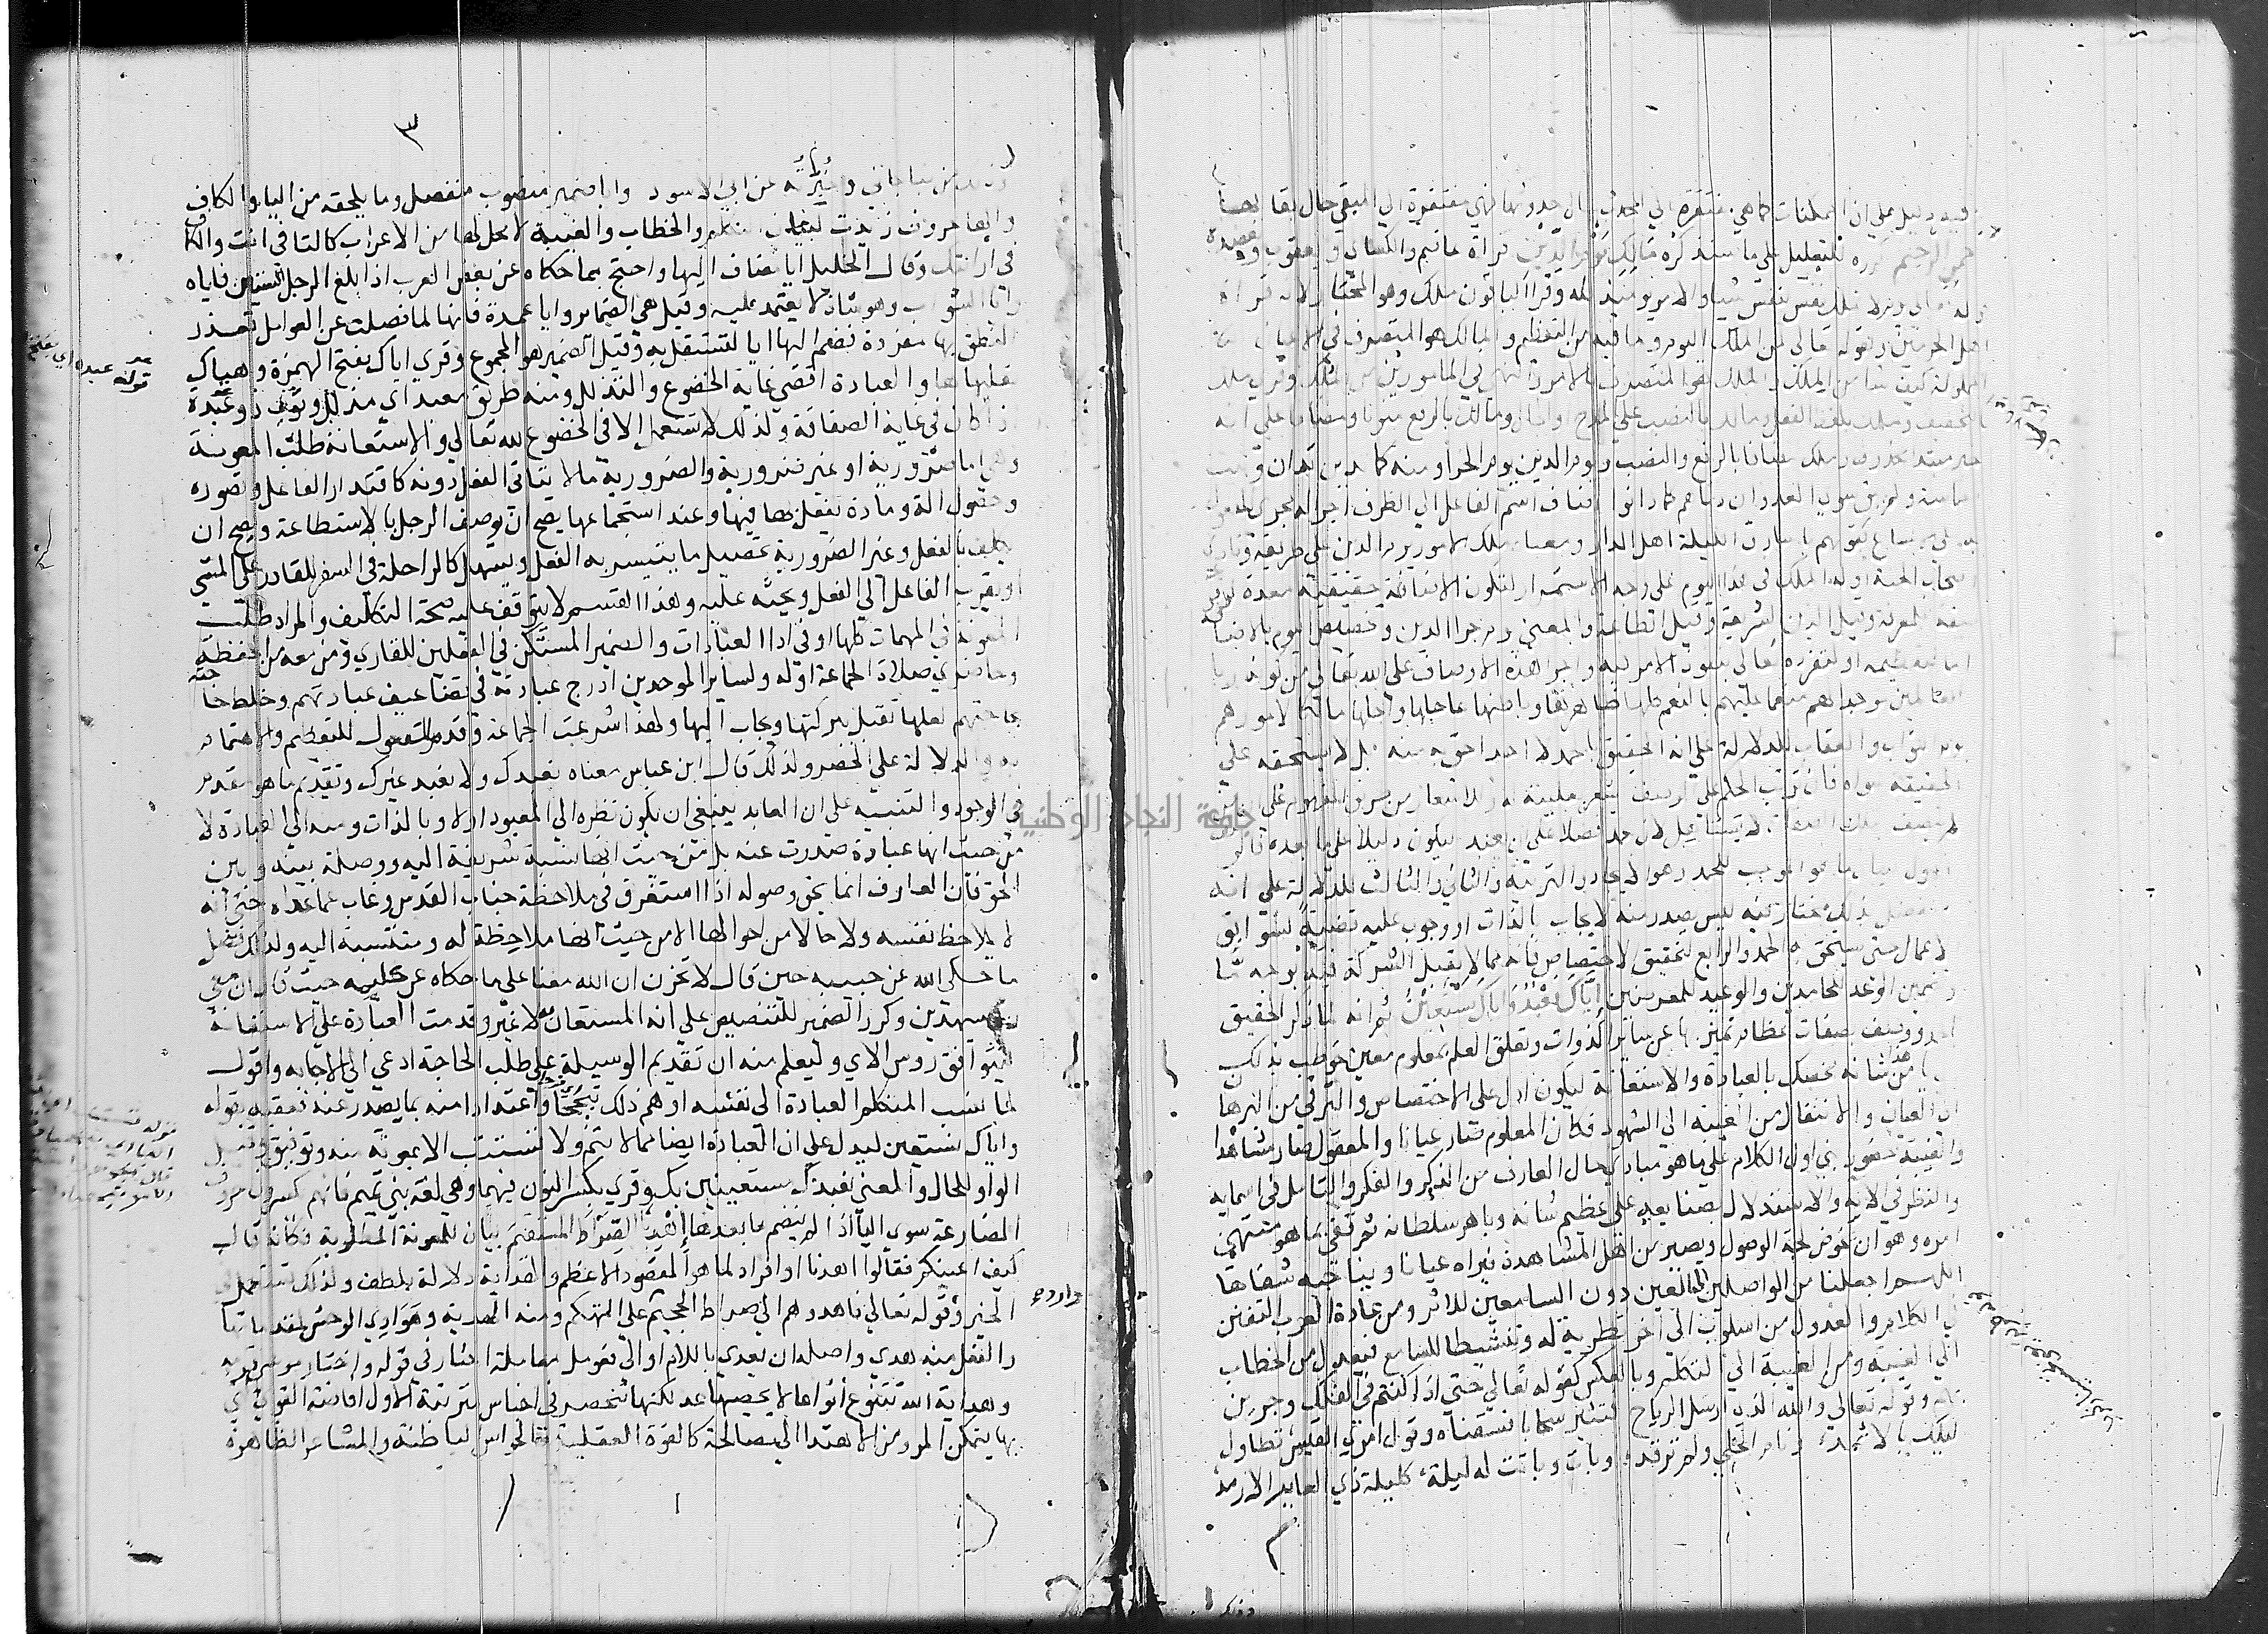 وفيه دليل على ان الممكنات كما هي مفتقرة الي المحدث حال حدوثها فهي مفتقرة الي المبقي حال بقائها
الرحيم كرره للتعليل على ما سنذكره مالك يوم الدين قراة عاصم والكسائي ويعقوب ويعضده
قوله تعالي يوم لا تملك نفس لنفس شيا والامر يومئذ لله وقرا الباقون ملك وهو المختار لانه قراة
اهل الحرمين ولقوله تعالى لمن الملك اليوم وما فيه من التعظيم والمالك هو المتصرف في الاعيان
المملوكة كيف شا من الملك والملك هو المتصرف بالامر والنهي في المامورين من الملك وقرئ ملك
بالتخفيف وملك بلفظ الفعل ومالكا بالنصب على المدح او الحال ومالك بالرفع منونا ومضافا على انه
خبر مبتدا محذوف وملك مضافا بالرفع والنصب ويوم الدين يوم الجزا ومنه كما تدين تدان وبيت
الحماسة ولم يبق سوى العدوان دناهم كما دانوا اضاف اسم الفاعل الي الظرف اجرا له مجرى المفعول
به على الاتساع كقولهم يا سارق الليلة اهل الدار ومعناه ملك الامور يوم الدين على طريقة ونادى
اصحاب الجنة او له الملك في هذا اليوم على وجه الاستمرار لتكون الاضافة حقيقية معدة لوقوعه
صفة للمعرفة وقيل الدين الشريعة وقيل الطاعة والمعنى يوم جزا الدين وتخصيص اليوم بالاضافة
اما لتعظيمه او لتفرده تعالى بنفوذ الامر فيه واجرا هذه الاوصاف على الله تعالى من كونه ربا
للعالمين موجدا لهم منعما عليهم بالنعم كلها ظاهرها وباطنها عاجلها واجلها مالكا لامورهم
يوم الثواب والعقاب للدلالة على انه الحقيق بالحمد لا احد احق به منه بل لا يستحقه على
الحقيقة سواه فان ترتب الحكم على الوصف يشعر بعليته له وللاشعار من طريق المفهوم على ان من
لم يتصف بتلك الصفات لا يستاهل لان يحمد فضلا على ان يعبد ليكون دليلا على ما بعده فالوصف
الاول لبيان ما هو الموجب للحمد وهو الايجاد والتربية والثاني والثالث للدلالة على انه
متفضل بذلك مختار فيه ليس يصدر منه لايجاب بالذات او وجوب عليه قضية لسوابق
الاعمال حتى يستحق به الحمد والرابع لتحقيق الاختصاص فانه مما لا يقبل الشركة فيه بوجه ما
وتضمين الوعد للحامدين والوعيد للمعرضين اياك نعبد واياك نستعين ثم انه لما ذكر الحقيق
بالحمد ووصف بصفات عظام تميز بها عن سائر الذوات وتعلق العلم بمعلوم معين خوطب بذلك
اي يا من هذا شانه نخصك بالعبادة والاستعانة ليكون ادل على الاختصاص والترقي من البرهان
الي العيان والانتقال من الغيبة الى الشهود فكان المعلوم صار عيانا والمعقول صار مشاهدا
والغيبة حضورا بني اول الكلام على ما هو مبادي حال العارف من الذكر والفكر والتامل في اسمايه
والنظر في الايه والاستدلال بصنايعه على عظيم شانه وباهر سلطانه ثم قفى بما هو منتهى
امره وهو ان يخوض لجة الوصول ويصير من اهل المشاهدة فيراه عيانا ويناجيه شفاها
اللهم اجعلنا من الواصلين الي العين دون السامعين للاثر ومن عادة العرب التفنن
في الكلام والعدول من اسلوب الي اخر تطرية له وتنشيطا للسامع فيعدل من الخطاب
الي الغيبة ومن الغيبة الي التكلم وبالعكس كقوله تعالي حتى اذا كنتم في الفلك وجرين
بهم وقوله تعالي والله الذي ارسل الرياح فتثير سحابا فسقناه وقول امرئ القيس تطاول
ليلك بالاثمد ونام الخلي ولم ترقد وبات وباتت له ليلة كليلة ذي العاير الارمد
وذلك
٣
وذلك من نبا جاني وخبرته عن ابي الاسود وايا ضمير منصوب منفصل وما يلحقه من اليا والكاف
والها حروف زيدت لبيان التكلم والخطاب والغيبة لا محل لها من الاعراب كالتا في انت والكاف
في ارايتك وقال الخليل ايا مضاف اليها واحتج بما حكاه عن بعض العرب اذا بلغ الرجل الستين فاياه
وايا الشواب وهو شاذ لا يعتمد عليه وقيل هي الضماير وايا عمدة فانها لما فصلت عن العوامل تعذر
النطق بها مفردة فضم اليها ايا لتستقل به وقيل الضمير هو المجموع وقرئ اياك بفتح الهمزة وهياك
بقلبها ها والعبادة اقصي غاية الخضوع والتذلل ومنه طريق معبد اي مذلل وثوب ذو عبدة
اذا كان في غاية الصفاقة ولذلك لا تستعمل الا في الخضوع لله تعالي والاستعانة طلب المعونة
وهي اما ضرورية او غير ضرورية والضرورية ما لا يتاتى الفعل دونه كاقتدار الفاعل وتصوره
وحصول الة ومادة يفعل بها فيها وعند استجماعها يصح ان يوصف الرجل بالاستطاعة ويصح ان
يكلف بالفعل وغير الضرورية تحصيل ما يتيسر به الفعل ويسهل كالراحلة في السفر للقادر على المشي
او يقرب الفاعل الي الفعل ويحثه عليه وهذا القسم لا يتوقف عليه صحة التكليف والمراد طلب
المعونة في المهمات كلها او في ادا العبادات والضمير المستكن في الفعلين للقاري ومن معه من الحفظة
وحاضري صلاة الجماعة او له ولساير الموحدين ادرج عبادته في تضاعيف عبادتهم وخلط حاجته
بحاجتهم لعلها تقبل ببركتها ويجاب اليها ولهذا شرعت الجماعة وقدم المفعول للتعظيم والاهتمام
به والدلالة على الحصر ولذلك قال ابن عباس معناه نعبدك ولا نعبد غيرك وتقديم ما هو مقدم
في الوجود والتنبيه على ان العابد ينبغي ان يكون نظره الي المعبود اولا وبالذات ومنه الي العبادة لا
من حيث انها عبادة صدرت عنه بل من حيث انها نسبة شريفة اليه ووصلة بينه وبين
الحق فان العارف انما يحق وصوله اذا استغرق في ملاحظة جناب القدس وغاب عما عداه حتى انه
لا يلاحظ نفسه ولا حالا من احوالها الا من حيث انها ملاحظة له ومنتسبة اليه ولذلك فضل
ما حكى الله عن حبيبه حين قال لا تحزن ان الله معنا على ما حكاه عن كليمه حيث قال ان معي
ربي سيهدين وكرر الضمير للتنصيص على انه المستعان به لا غير وقدمت العبادة على الاستعانة
ليتوافق روس الاي وليعلم منه ان تقديم الوسيلة على طلب الحاجة ادعي الي الاجابه واقول
لما نسب المتكلم العبادة الى نفسه اوهم ذلك تبجحا واعتدادا منه بما يصدر عنه فعقبه بقوله
واياك نستعين ليدل على ان العبادة ايضا مما لا يتم ولا تستتب الا بمعونة منه وتوفيق وقيل
الواو للحال والمعنى نعبدك مستعينين بك وقرئ بكسر النون فيهما وهي لغة بني تميم فانهم يكسرون حروف
المضارعة سوي اليا اذا لم ينضم ما بعدها اهدنا الصراط المستقيم بيان للمعونة المطلوبة فكانه قال
كيف اعينكم فقالوا اهدنا او افراد لما هو المقصود الاعظم والهداية دلالة بلطف ولذلك تستعمل في
الخير وقوله تعالي فاهدوهم الي صراط الجحيم على التهكم ومنه الهدية وهوادي الوحش لمقدماتها
والفعل منه هدي واصله ان يعدي باللام او الي فعومل معاملة اختار في قوله واختار موسى قومه
وهداية الله تتنوع انواعا لا يحصيها عد لكنها تنحصر في اجناس مترتبة الاول افاضة القوي التي
بها يتمكن المرء من الاهتدا الي مصالحه كالقوة العقلية والحواس الباطنة والمشاعر الظاهرة
جامعة النجاح الوطنية